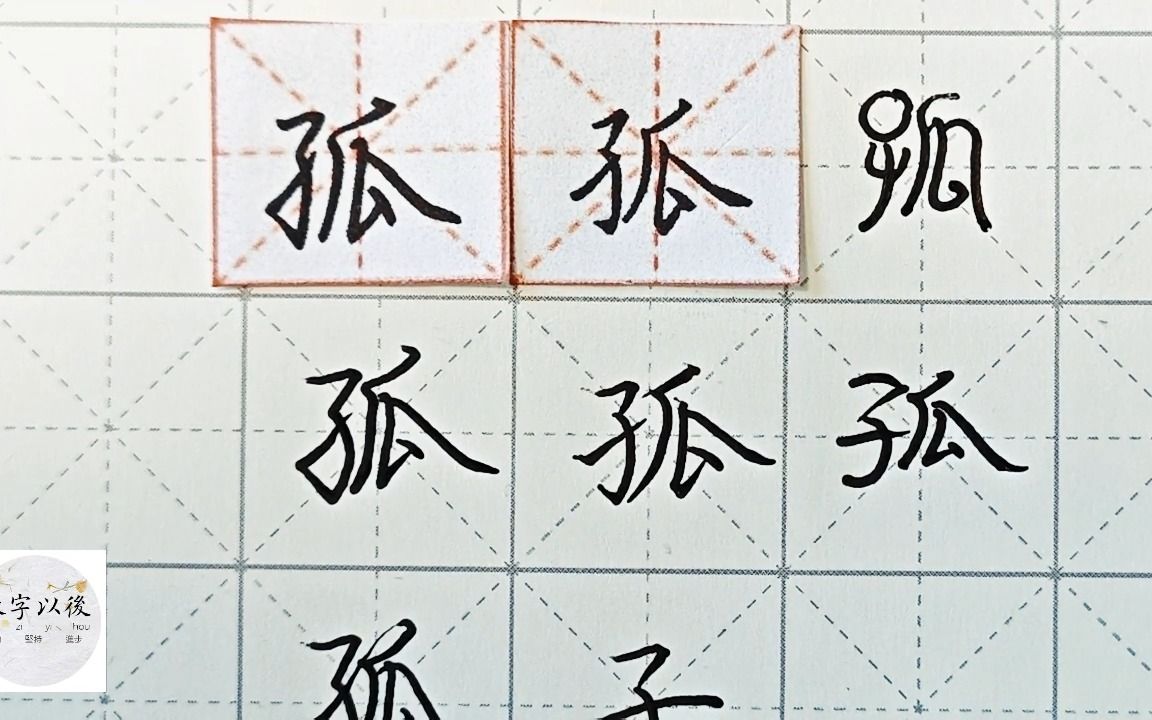 孤 孤 孤
孤 孤 孤
孤 子
字以後
zi yi hou
堅持 進步